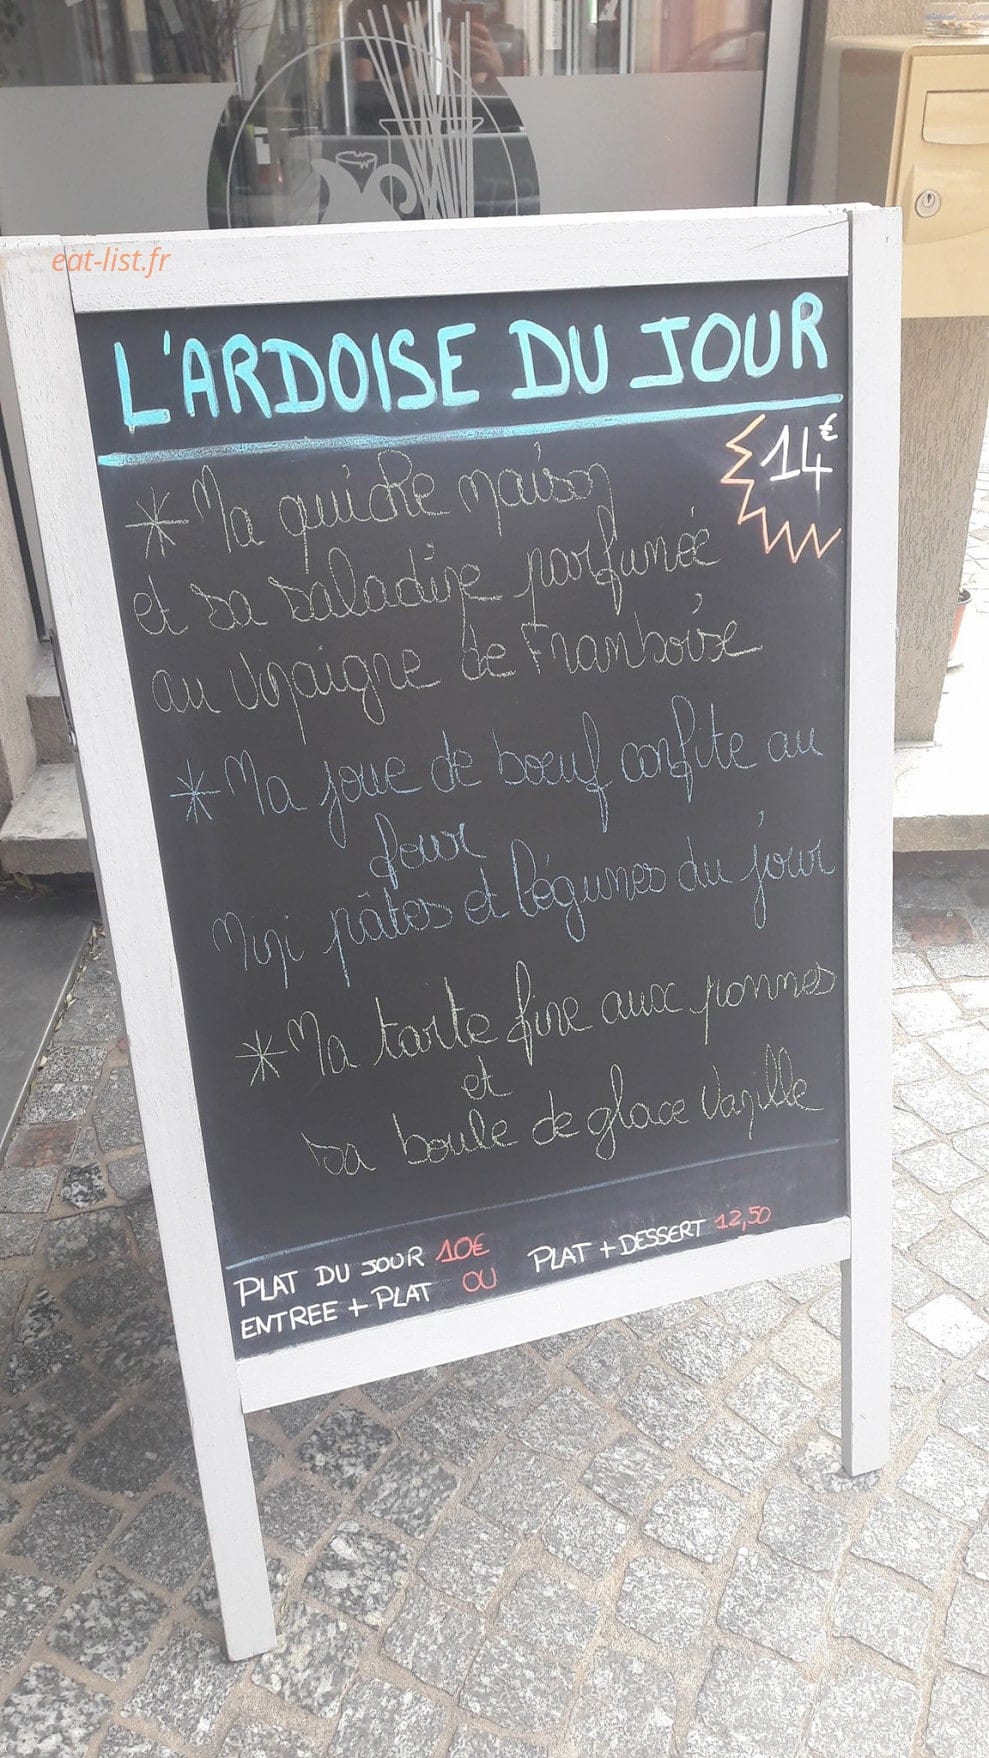 eat-list.fr
L'ARDOISE DU JOUR
14€
* Ma quiche maison
et sa saladine parfumée
au vinaigre de Framboise
* Ma joue de boeuf confite au
four
Mini pâtes et légumes du jour
* Ma tarte fine aux pommes
et
sa boule de glace Vanille
PLAT DU JOUR 10€
ENTREE + PLAT OU PLAT + DESSERT 12,50